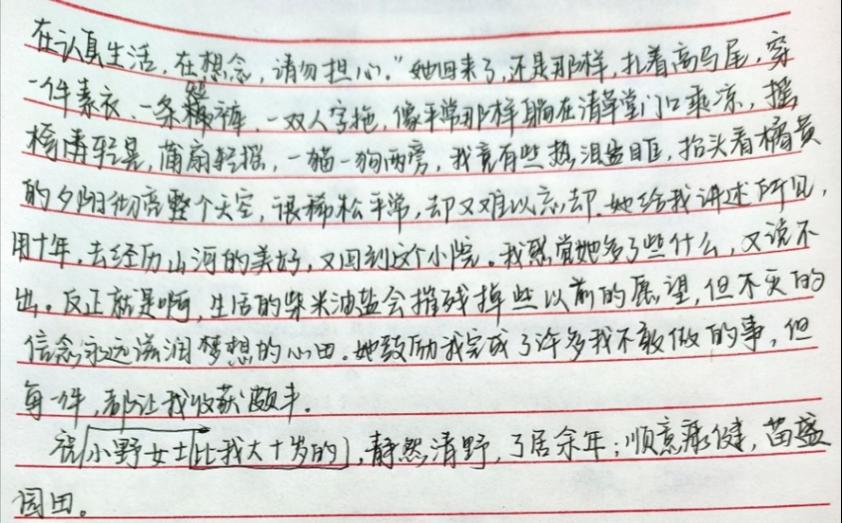 在认真生活,在想念,请勿担心。”她回来了,还是那样,扎着高马尾,穿
一件素衣、一条裤,一双人字拖,像平常那样躺在清草堂门口乘凉,摇
椅轻晃,蒲扇轻摇,一猫一狗两旁,我竟有些热泪盈眶,抬头看橘黄
的夕阳彻亮整个天空,很稀松平常,却又难以忘却.她给我讲述所见,
用十年,去经历山河的美好,又回到这个小院。我感觉她多了些什么,又说不
出。反正就是啊,生活的柴米油盐会摧残掉些以前的展望,但不灭的
信念永远滋润梦想的心田.她鼓励我完成了许多我不敢做的事,但
每一件,都让我收获颇丰.
祝小野女士比我大十岁的,静然清野,了居余年;顺意康健,苗盛
园田。